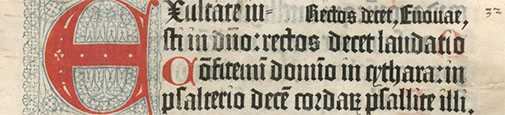 EXultate iu- Rectos decet, Euouae,
sti in dño: rectos decet laudatio
Cõfitemĩ domĩo in cythara: in
psalterio decẽ cordaꝝ psallite illi.